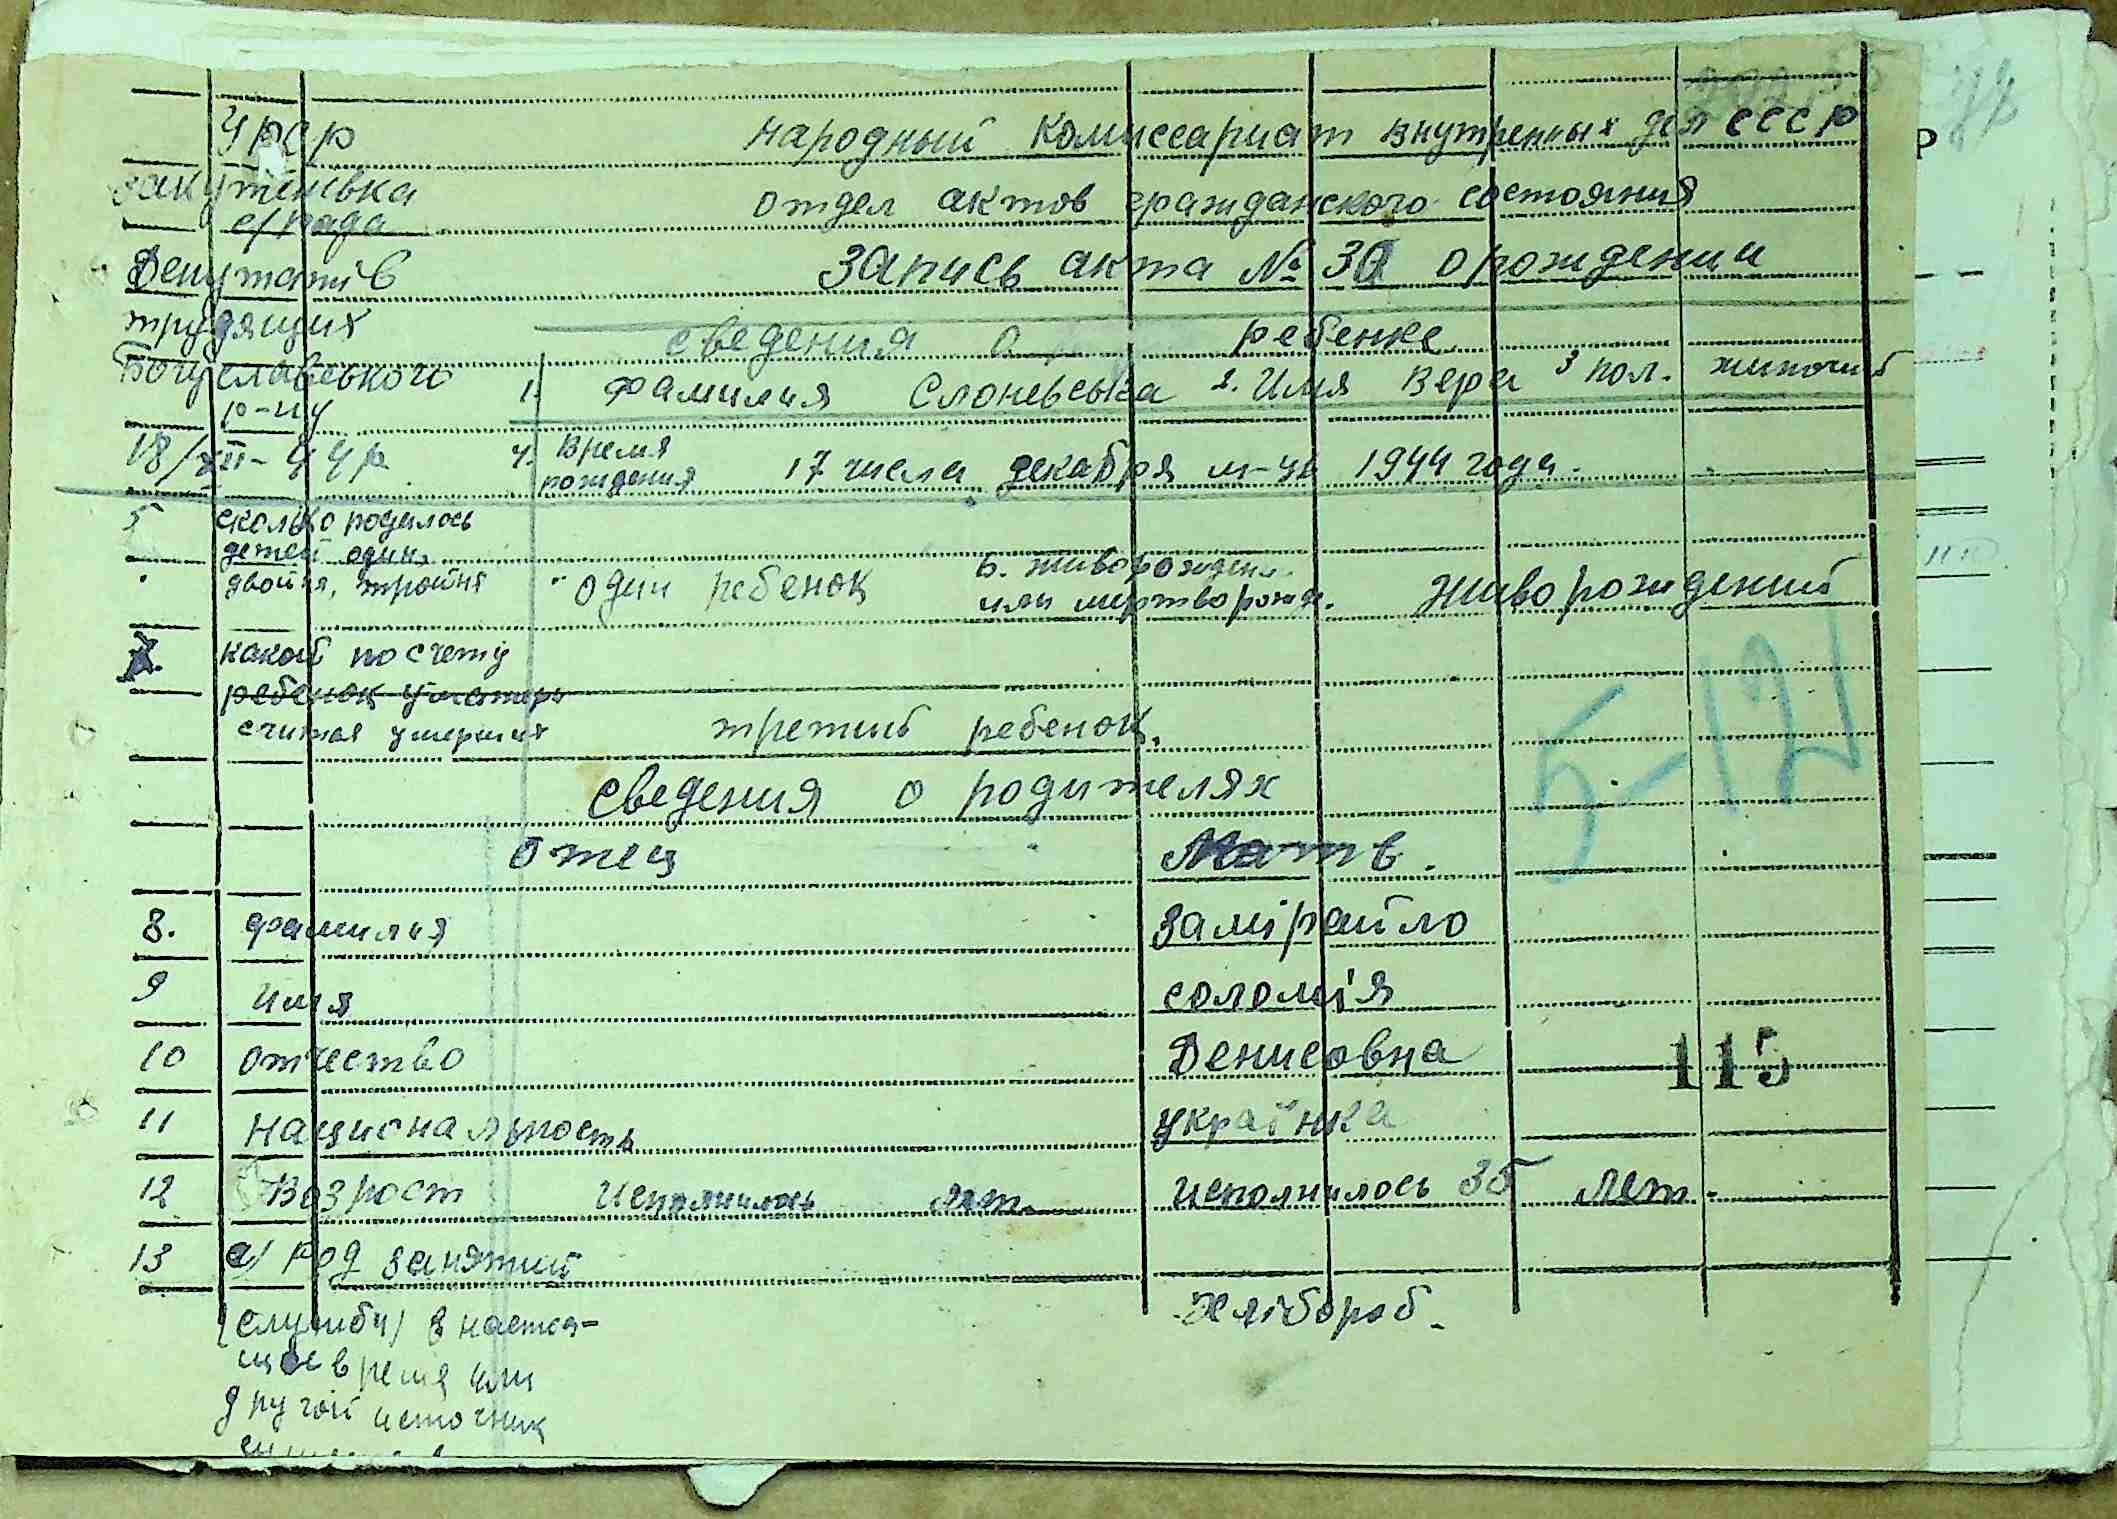 УРСР Народный Комиссариат внутренных дел СССР
Закутенівка
с/рада отдел актов гражданского состояния
Депутатів Запись акта № 30 о рождении
трудящих
сведения о ребенке
Богуславського 1. Фамилия Слоневська 2. Имя Вера 3 пол. жиночий
р-ну
18/XII-44р 4. Время рождения 17 числа декабря м-ца 1944 года.
5 сколько родилось
детей один,
двойня, тройня один ребенок 6. живорожден. или мертворожд. живорождений
7. какой по счету
ребенок у матери
считая умерших третий ребенок.
Сведения о родителях
Отец Мать.
8. Фамилия Замірайло
9 Имя Соломія
10 отчество Денисовна
115
11 Национальность українка
12 Возрост Исполнилось лет. Исполнилось 35 лет.
13 а/ Род занятий
(службы) в настоя- Хлібороб.
щое время или
другой источник
5-12